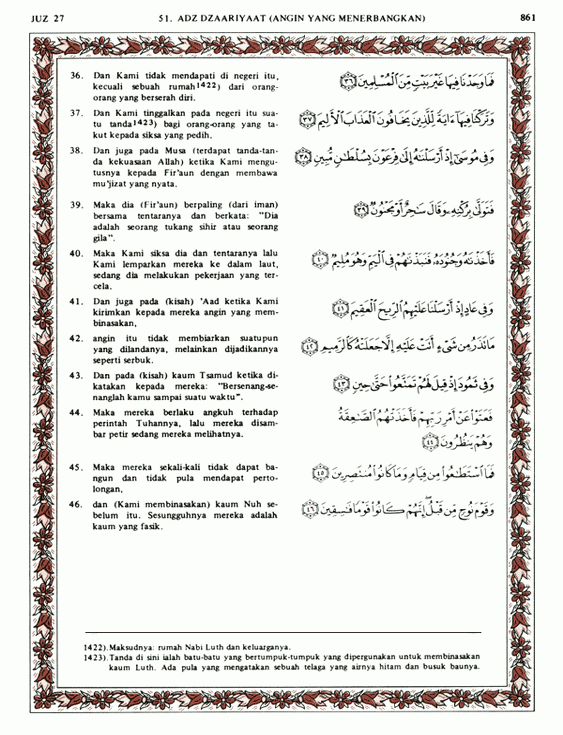 JUZ 27
51. ADZ DZAARIYAAT (ANGIN YANG MENERBANGKAN)
861
36. Dan Kami tidak mendapati di negeri itu,
kecuali sebuah rumah1422) dari orang-
orang yang berserah diri.
فَمَا وَجَدْنَا فِيهَا غَيْرَ بَيْتٍ مِّنَ ٱلْمُسْلِمِينَ ﴿٣٦﴾
37. Dan Kami tinggalkan pada negeri itu sua-
tu tanda1423) bagi orang-orang yang ta-
kut kepada siksa yang pedih.
وَتَرَكْنَا فِيهَآ ءَايَةً لِّلَّذِينَ يَخَافُونَ ٱلْعَذَابَ ٱلْأَلِيمَ ﴿٣٧﴾
38. Dan juga pada Musa (terdapat tanda-tan-
da kekuasaan Allah) ketika Kami mengu-
tusnya kepada Fir'aun dengan membawa
mu'jizat yang nyata.
وَفِى مُوسَىٰٓ إِذْ أَرْسَلْنَٰهُ إِلَىٰ فِرْعَوْنَ بِسُلْطَٰنٍ مُّبِينٍ ﴿٣٨﴾
39. Maka dia (Fir'aun) berpaling (dari iman)
bersama tentaranya dan berkata: "Dia
adalah seorang tukang sihir atau seorang
gila".
فَتَوَلَّىٰ بِرُكْنِهِۦ وَقَالَ سَٰحِرٌ أَوْ مَجْنُونٌ ﴿٣٩﴾
40. Maka Kami siksa dia dan tentaranya lalu
Kami lemparkan mereka ke dalam laut,
sedang dia melakukan pekerjaan yang ter-
cela.
فَأَخَذْنَٰهُ وَجُنُودَهُۥ فَنَبَذْنَٰهُمْ فِى ٱلْيَمِّ وَهُوَ مُلِيمٌ ﴿٤٠﴾
41. Dan juga pada (kisah) 'Aad ketika Kami
kirimkan kepada mereka angin yang mem-
binasakan,
وَفِى عَادٍ إِذْ أَرْسَلْنَا عَلَيْهِمُ ٱلرِّيحَ ٱلْعَقِيمَ ﴿٤١﴾
42. angin itu tidak membiarkan suatupun
yang dilandanya, melainkan dijadikannya
seperti serbuk.
مَا تَذَرُ مِن شَىْءٍ أَتَتْ عَلَيْهِ إِلَّا جَعَلَتْهُ كَٱلرَّمِيمِ ﴿٤٢﴾
43. Dan pada (kisah) kaum Tsamud ketika di-
katakan kepada mereka: "Bersenang-se-
nanglah kamu sampai suatu waktu".
وَفِى ثَمُودَ إِذْ قِيلَ لَهُمْ تَمَتَّعُوا۟ حَتَّىٰ حِينٍ ﴿٤٣﴾
44. Maka mereka berlaku angkuh terhadap
perintah Tuhannya, lalu mereka disam-
bar petir sedang mereka melihatnya.
فَعَتَوْا۟ عَنْ أَمْرِ رَبِّهِمْ فَأَخَذَتْهُمُ ٱلصَّٰعِقَةُ
وَهُمْ يَنظُرُونَ ﴿٤٤﴾
45. Maka mereka sekali-kali tidak dapat ba-
ngun dan tidak pula mendapat perto-
longan,
فَمَا ٱسْتَطَٰعُوا۟ مِن قِيَامٍ وَمَا كَانُوا۟ مُنتَصِرِينَ ﴿٤٥﴾
46. dan (Kami membinasakan) kaum Nuh se-
belum itu. Sesungguhnya mereka adalah
kaum yang fasik.
وَقَوْمَ نُوحٍ مِّن قَبْلُ ۖ إِنَّهُمْ كَانُوا۟ قَوْمًا فَٰسِقِينَ ﴿٤٦﴾
1422). Maksudnya: rumah Nabi Luth dan keluarganya.
1423). Tanda di sini ialah batu-batu yang bertumpuk-tumpuk yang dipergunakan untuk membinasakan
kaum Luth. Ada pula yang mengatakan sebuah telaga yang airnya hitam dan busuk baunya.